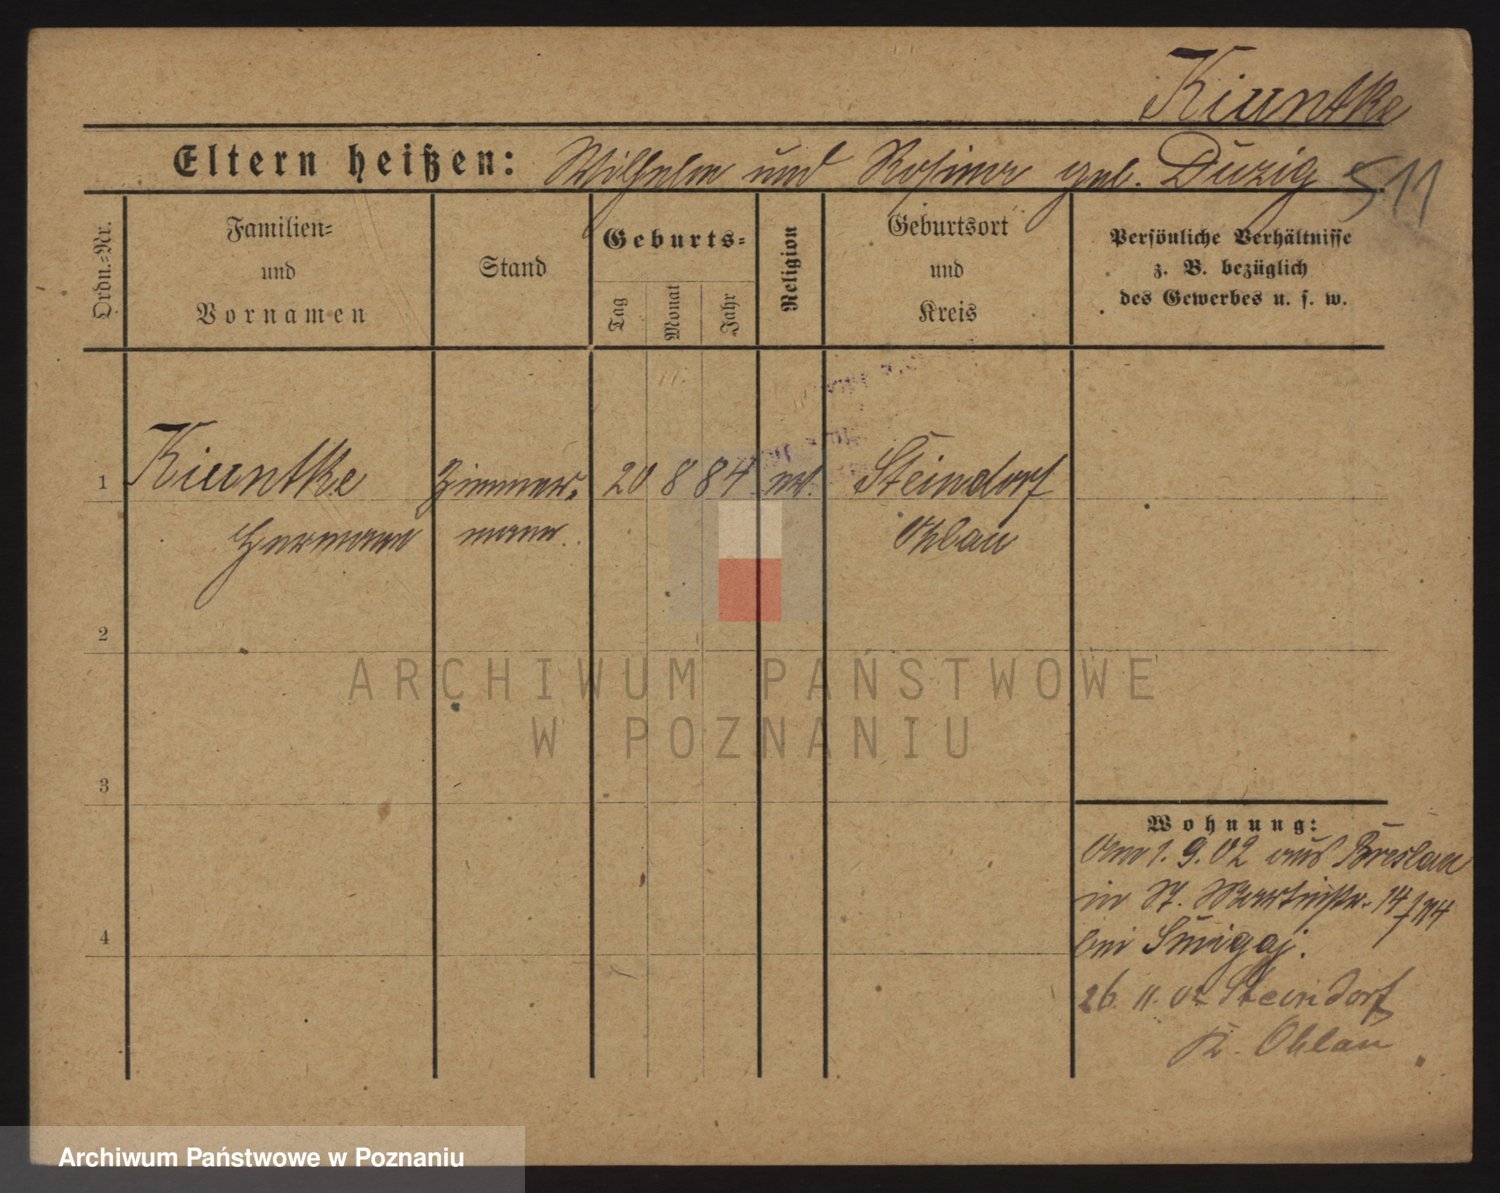 Kiuntke
Eltern heißen: Wilhelm und Rosina geb. Duzig 511
Ordn.-Nr.
Familien-
und
Vornamen
Stand
Geburts-
Tag
Monat
Jahr
Religion
Geburtsort
und
Kreis
Persönliche Verhältnisse
z. B. bezüglich
des Gewerbes u. s. w.
1 Kiuntke Zimmer- 20 8 84 Steindorf
Hermann mann Ohlau
2
ARCHIWUM PAŃSTWOWE
W POZNANIU
3
Wohnung:
Am 1. 9. 02 aus Breslau
in St. Martinstr. 14
bei Smigaj.
4
26. 11. 02 Steindorf
Kr. Ohlau
Archiwum Państwowe w Poznaniu